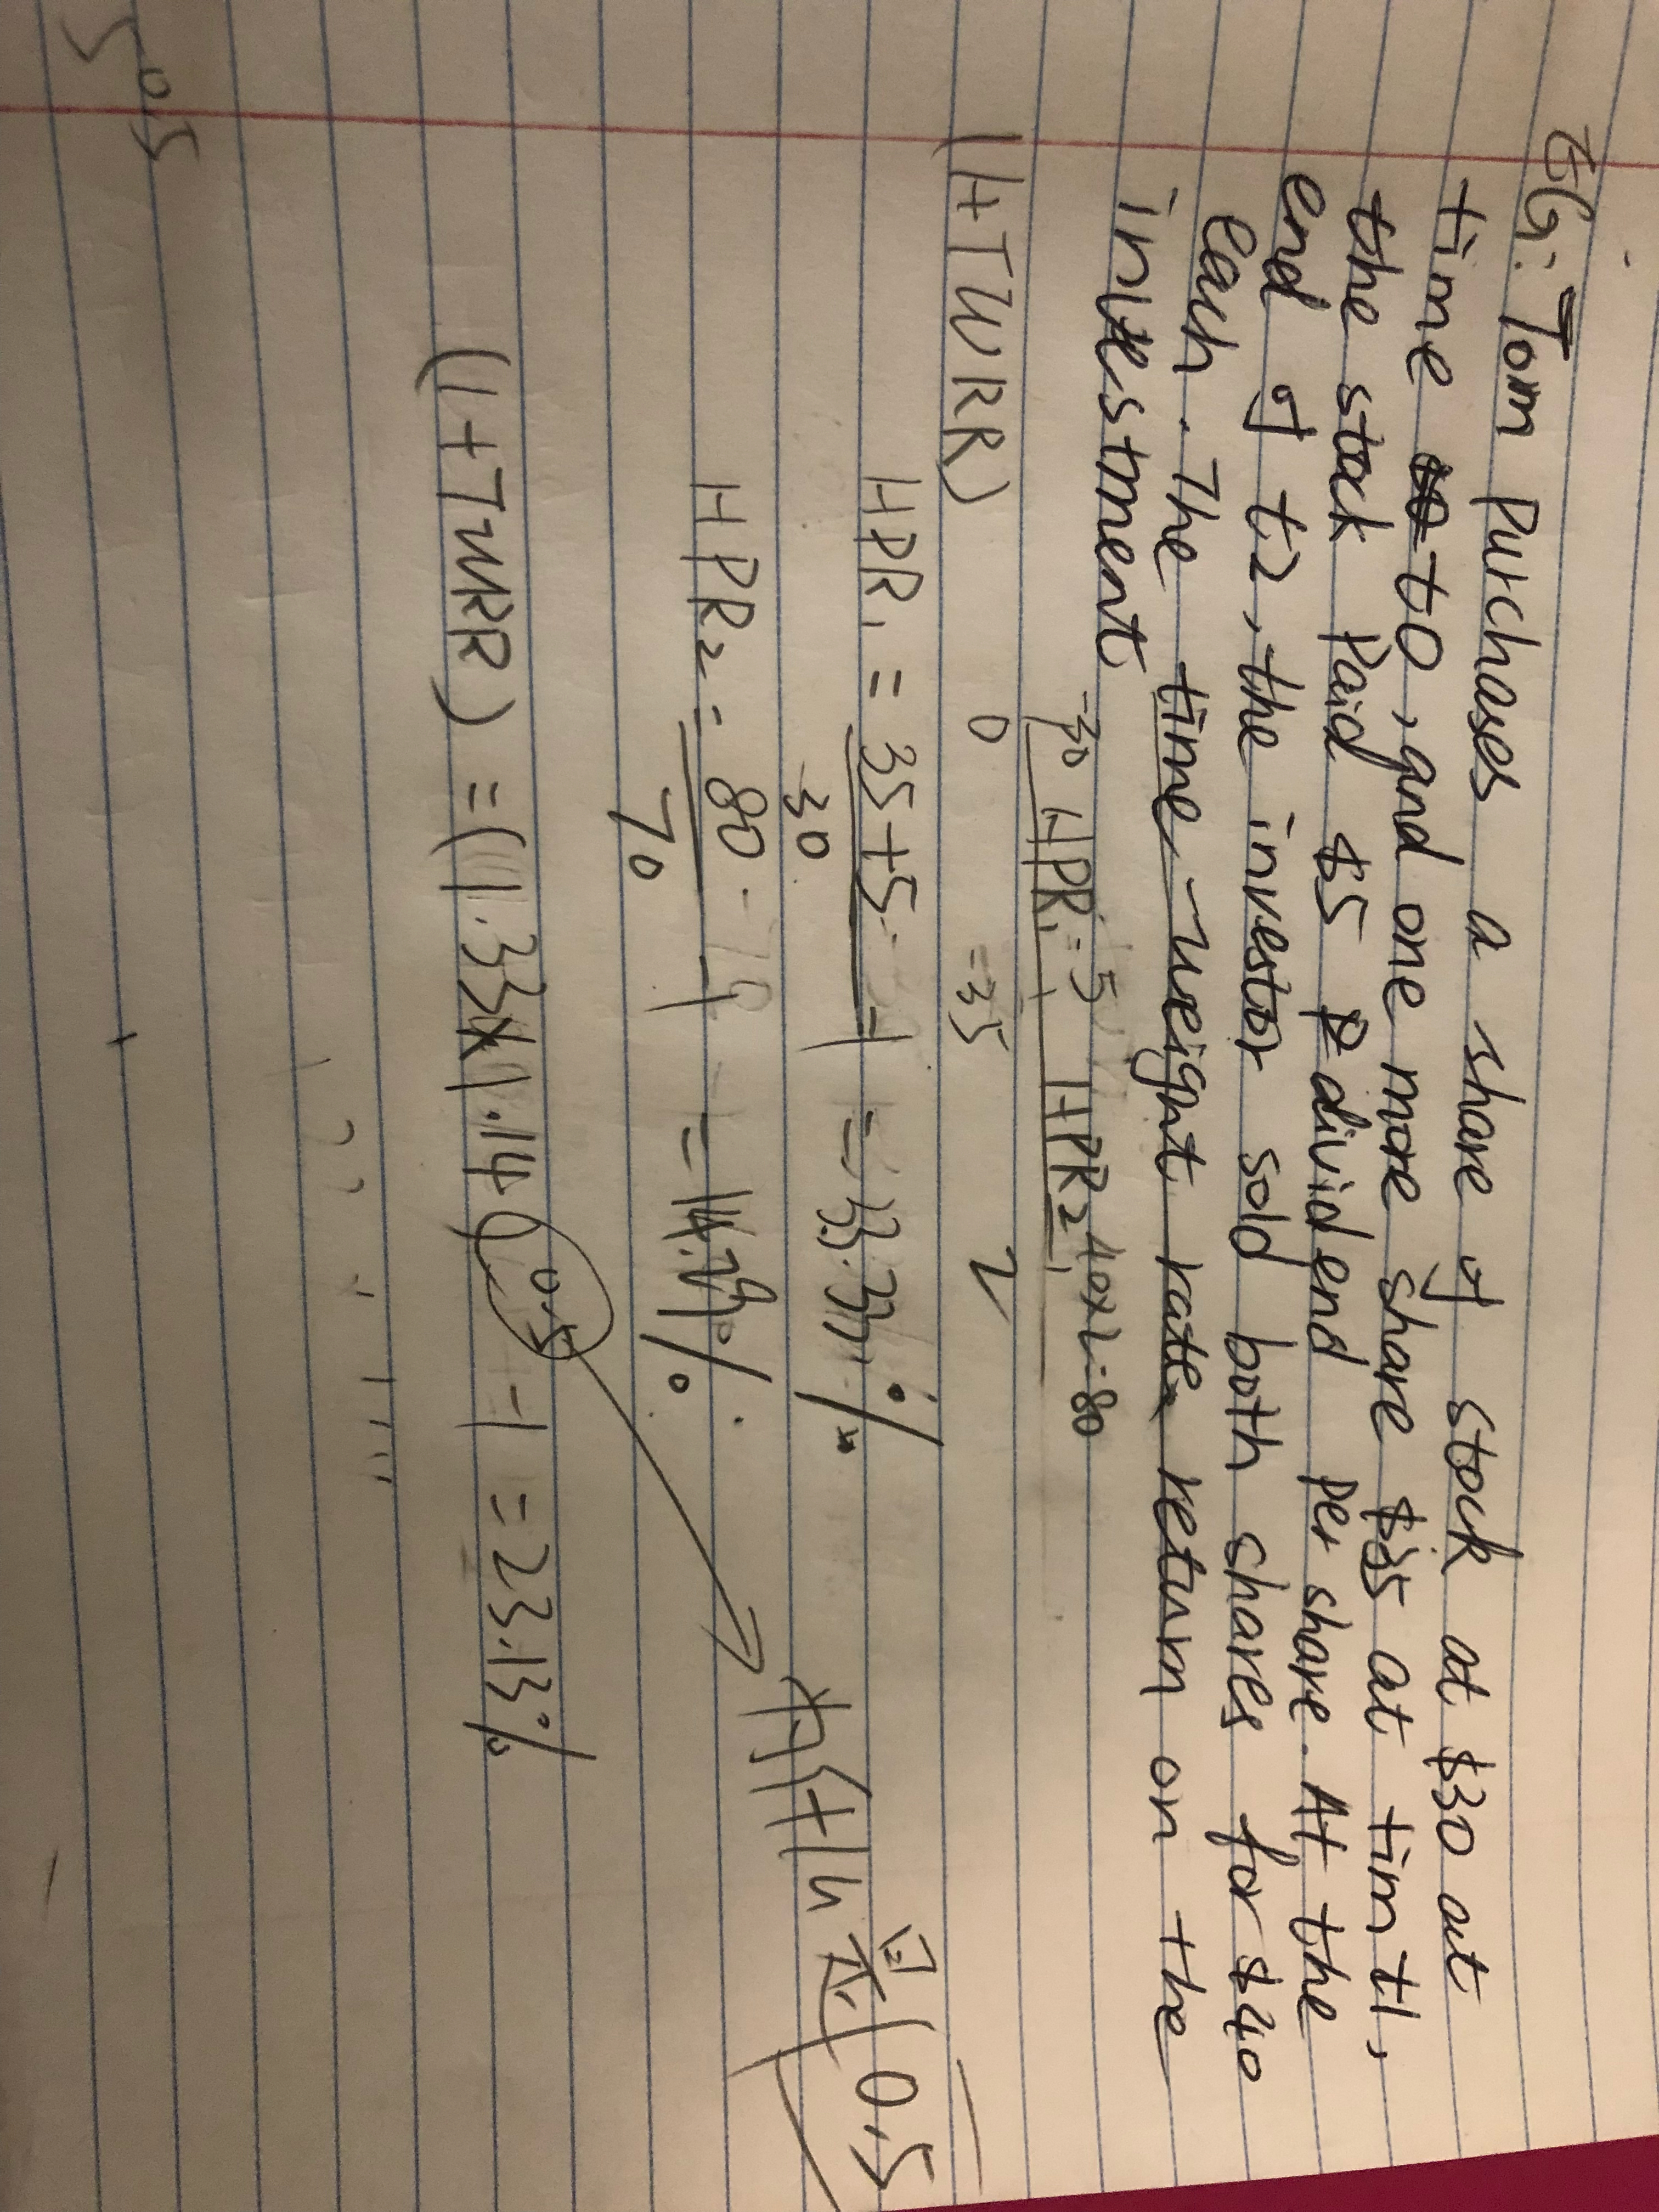 EG: Tom purchases a share of stock at $30 at
time t0, and one more share $35 at tim t1,
the stock Paid $5 dividend per share. At the
end of t2, the investor sold both shares for $40
each. The time-weight rate return on the
investment
-30 HPR1 = 5 HPR2 40x2=80
0 =35 2
(1+TWRR)
HPR1 = 35+5 -1 = 33.33%
30
HPR2 = 80 -1 = 14.29%
70
为什么是 0.5
(1+TWRR) = (1.33x1.14)^0.5 -1 = 23.13%
0.5